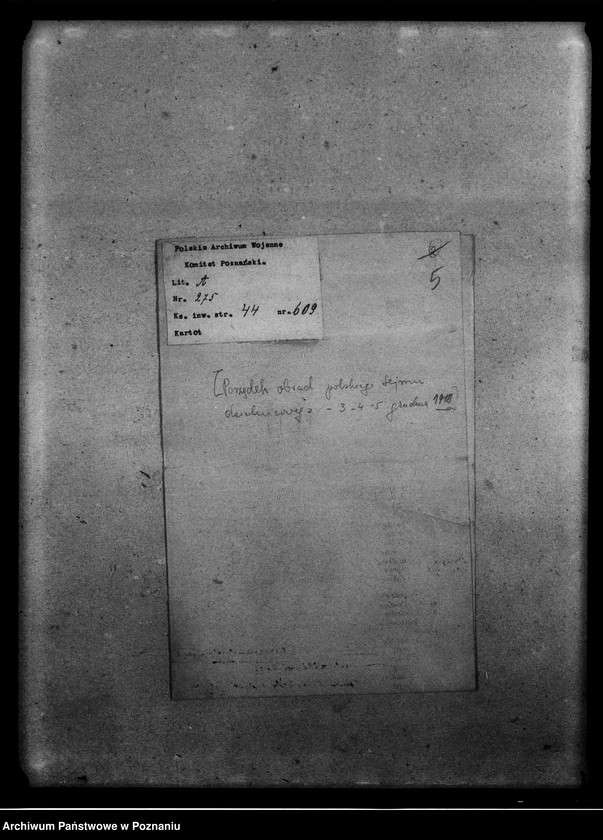 Polskie Archiwum Wojenne
Komitet Poznański.
Lit. A
Nr. 275
Ks. inw. str. 44 nr. 609
Kartot
6
5
[Porządek obrad polskiego Sejmu
dzielnicowego - 3-4-5 grudnia 1918]
Archiwum Państwowe w Poznaniu